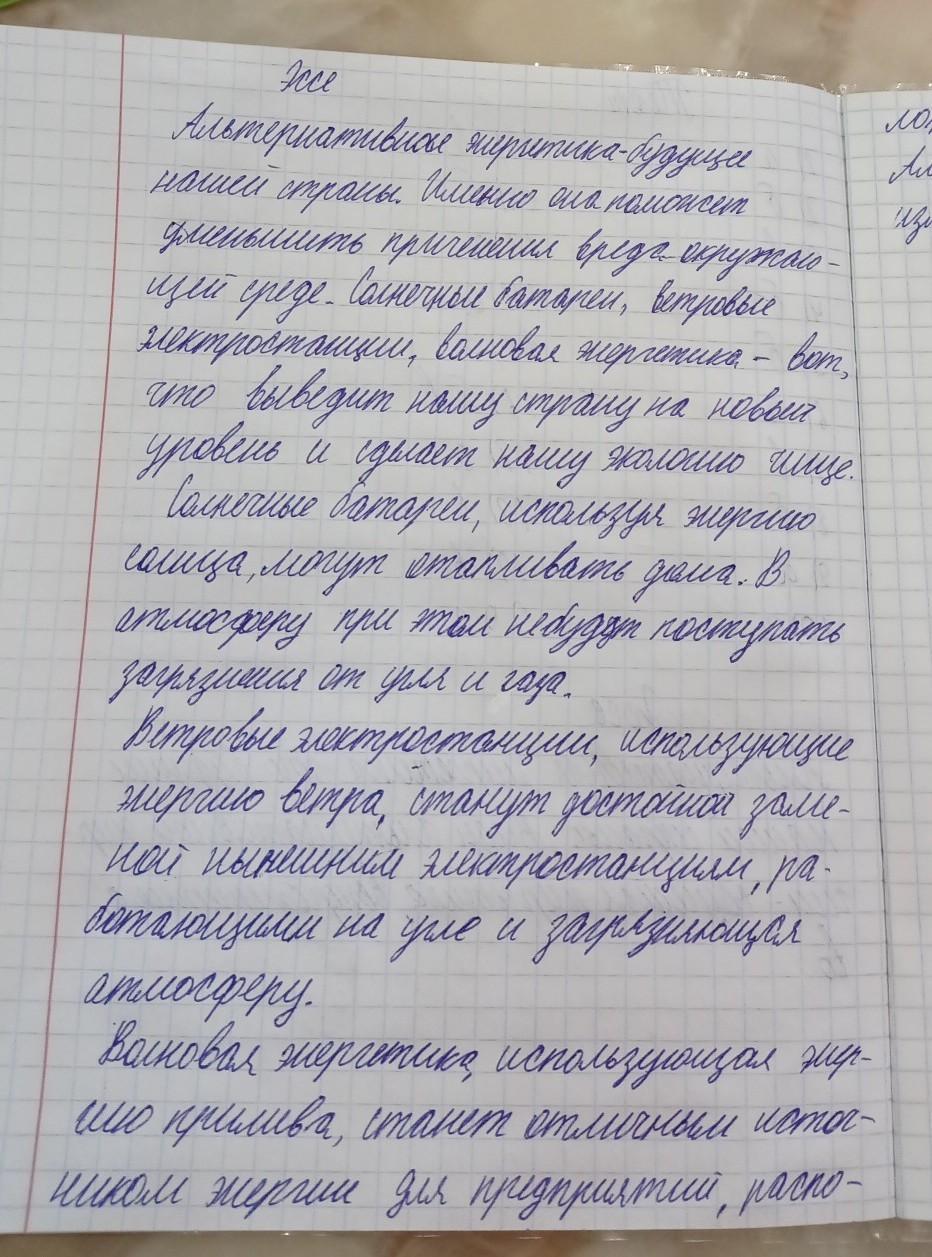 Эссе
Альтернативная энергетика-будущее
нашей страны. Именно она поможет
уменьшить причинения вреда окружаю-
щей среде. Солнечные батареи, ветровые
электростанции, волновая энергетика - вот,
что выведит нашу страну на новый
уровень и сделает нашу экологию чище.
Солнечные батареи, используя энергию
солнца, могут отапливать дома. В
атмосферу при этом небудут поступать
загрязнения от угля и газа.
Ветровые электростанции, использующие
энергию ветра, станут достойной заме-
ной нынешним электростанциям, ра-
ботающими на угле и загрязняющия
атмосферу.
Волновая энергетика, использующая энер-
гию прилива, станет отличным источ-
ником энергии для предприятий, распо-